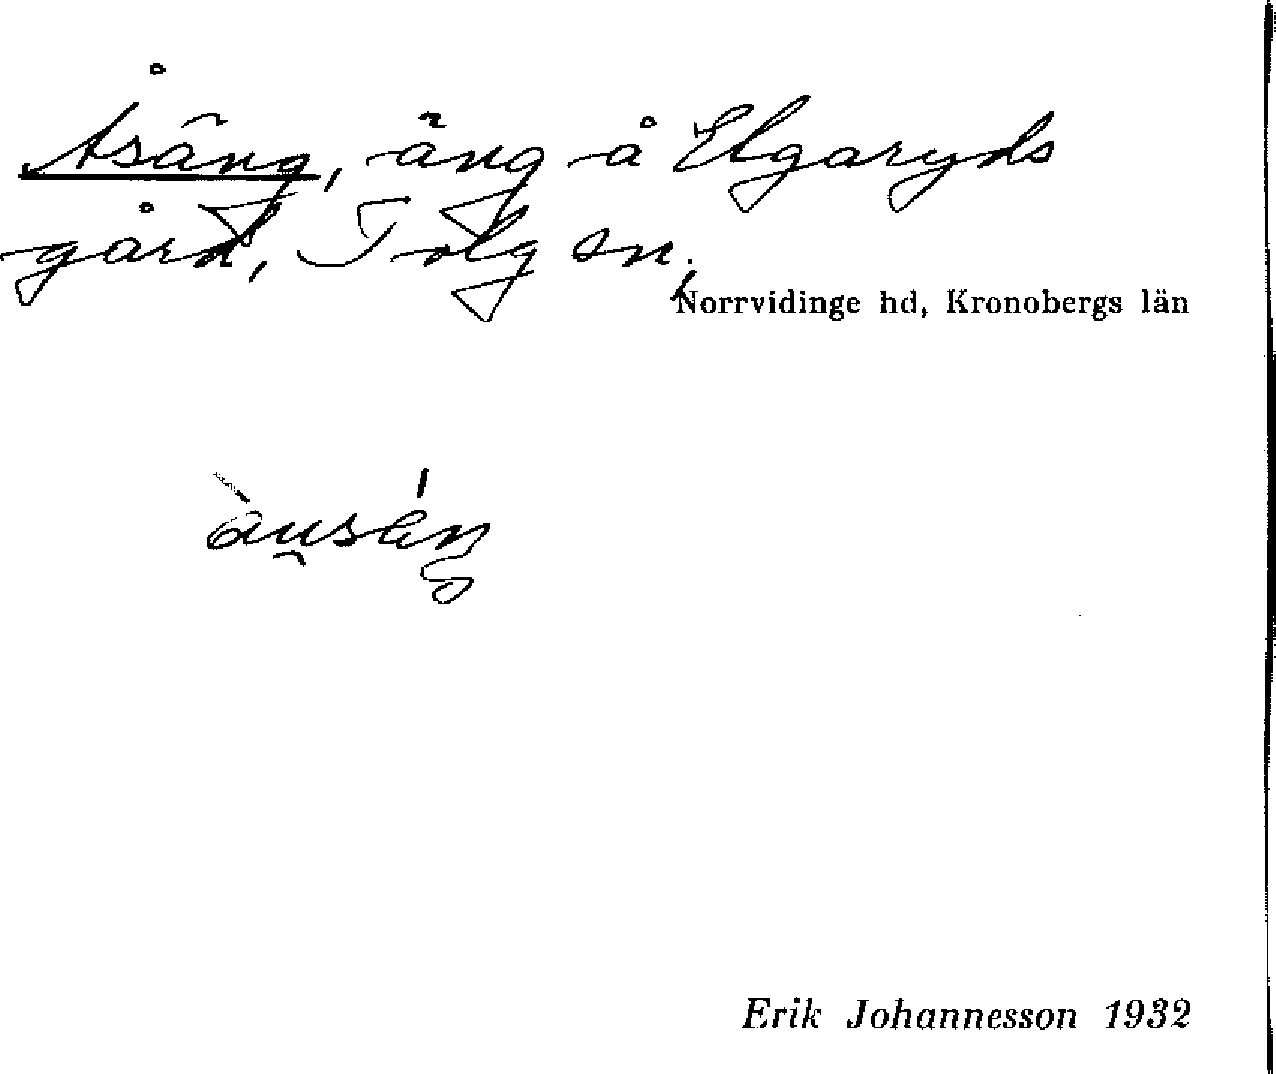 Åsäng, äng å Elgaryds
gård, Tolg sn,
Norrvidinge hd, Kronobergs län
àu̯sáŋ
Erik Johannesson 1932